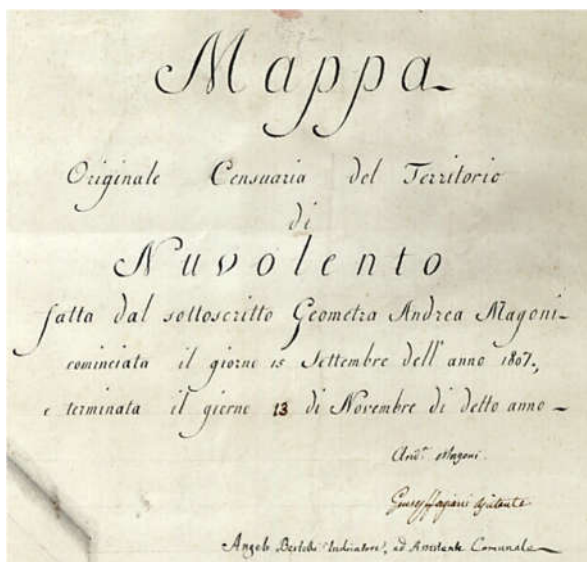 Mappa
Originale Censuaria del Territorio
di
Nuvolento
fatta dal sottoscritto Geometra Andrea Magoni
cominciata il giorno 15 Settembre dell' anno 1807.,
e terminata il giorno 13 di Novembre di detto anno
And.ª Magoni.
Ajutante
Angelo Indicatore, ed Assistente Comunale